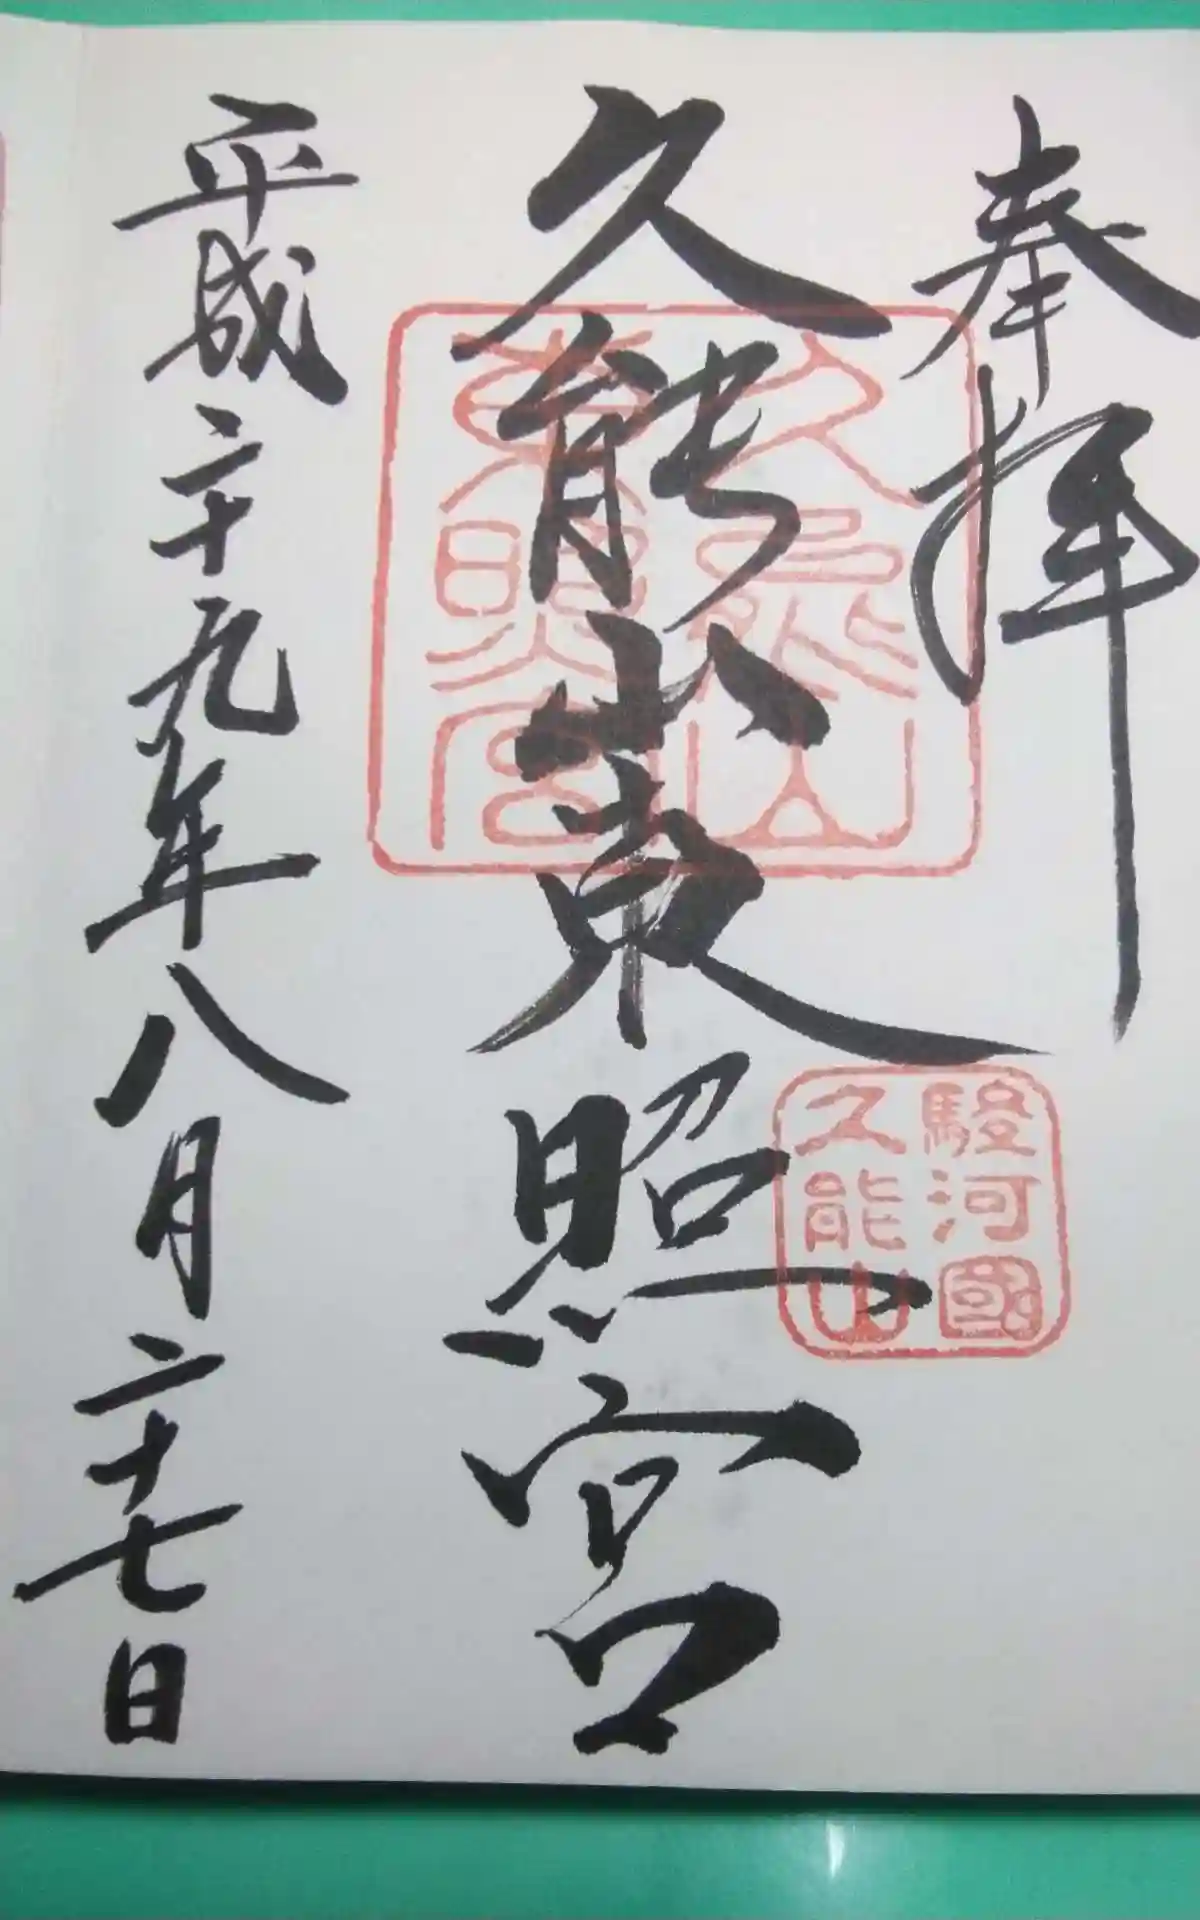 奉拝
久能山東照宮
平成二十九年八月二十七日
久能山
東照宮
駿河國
久能山